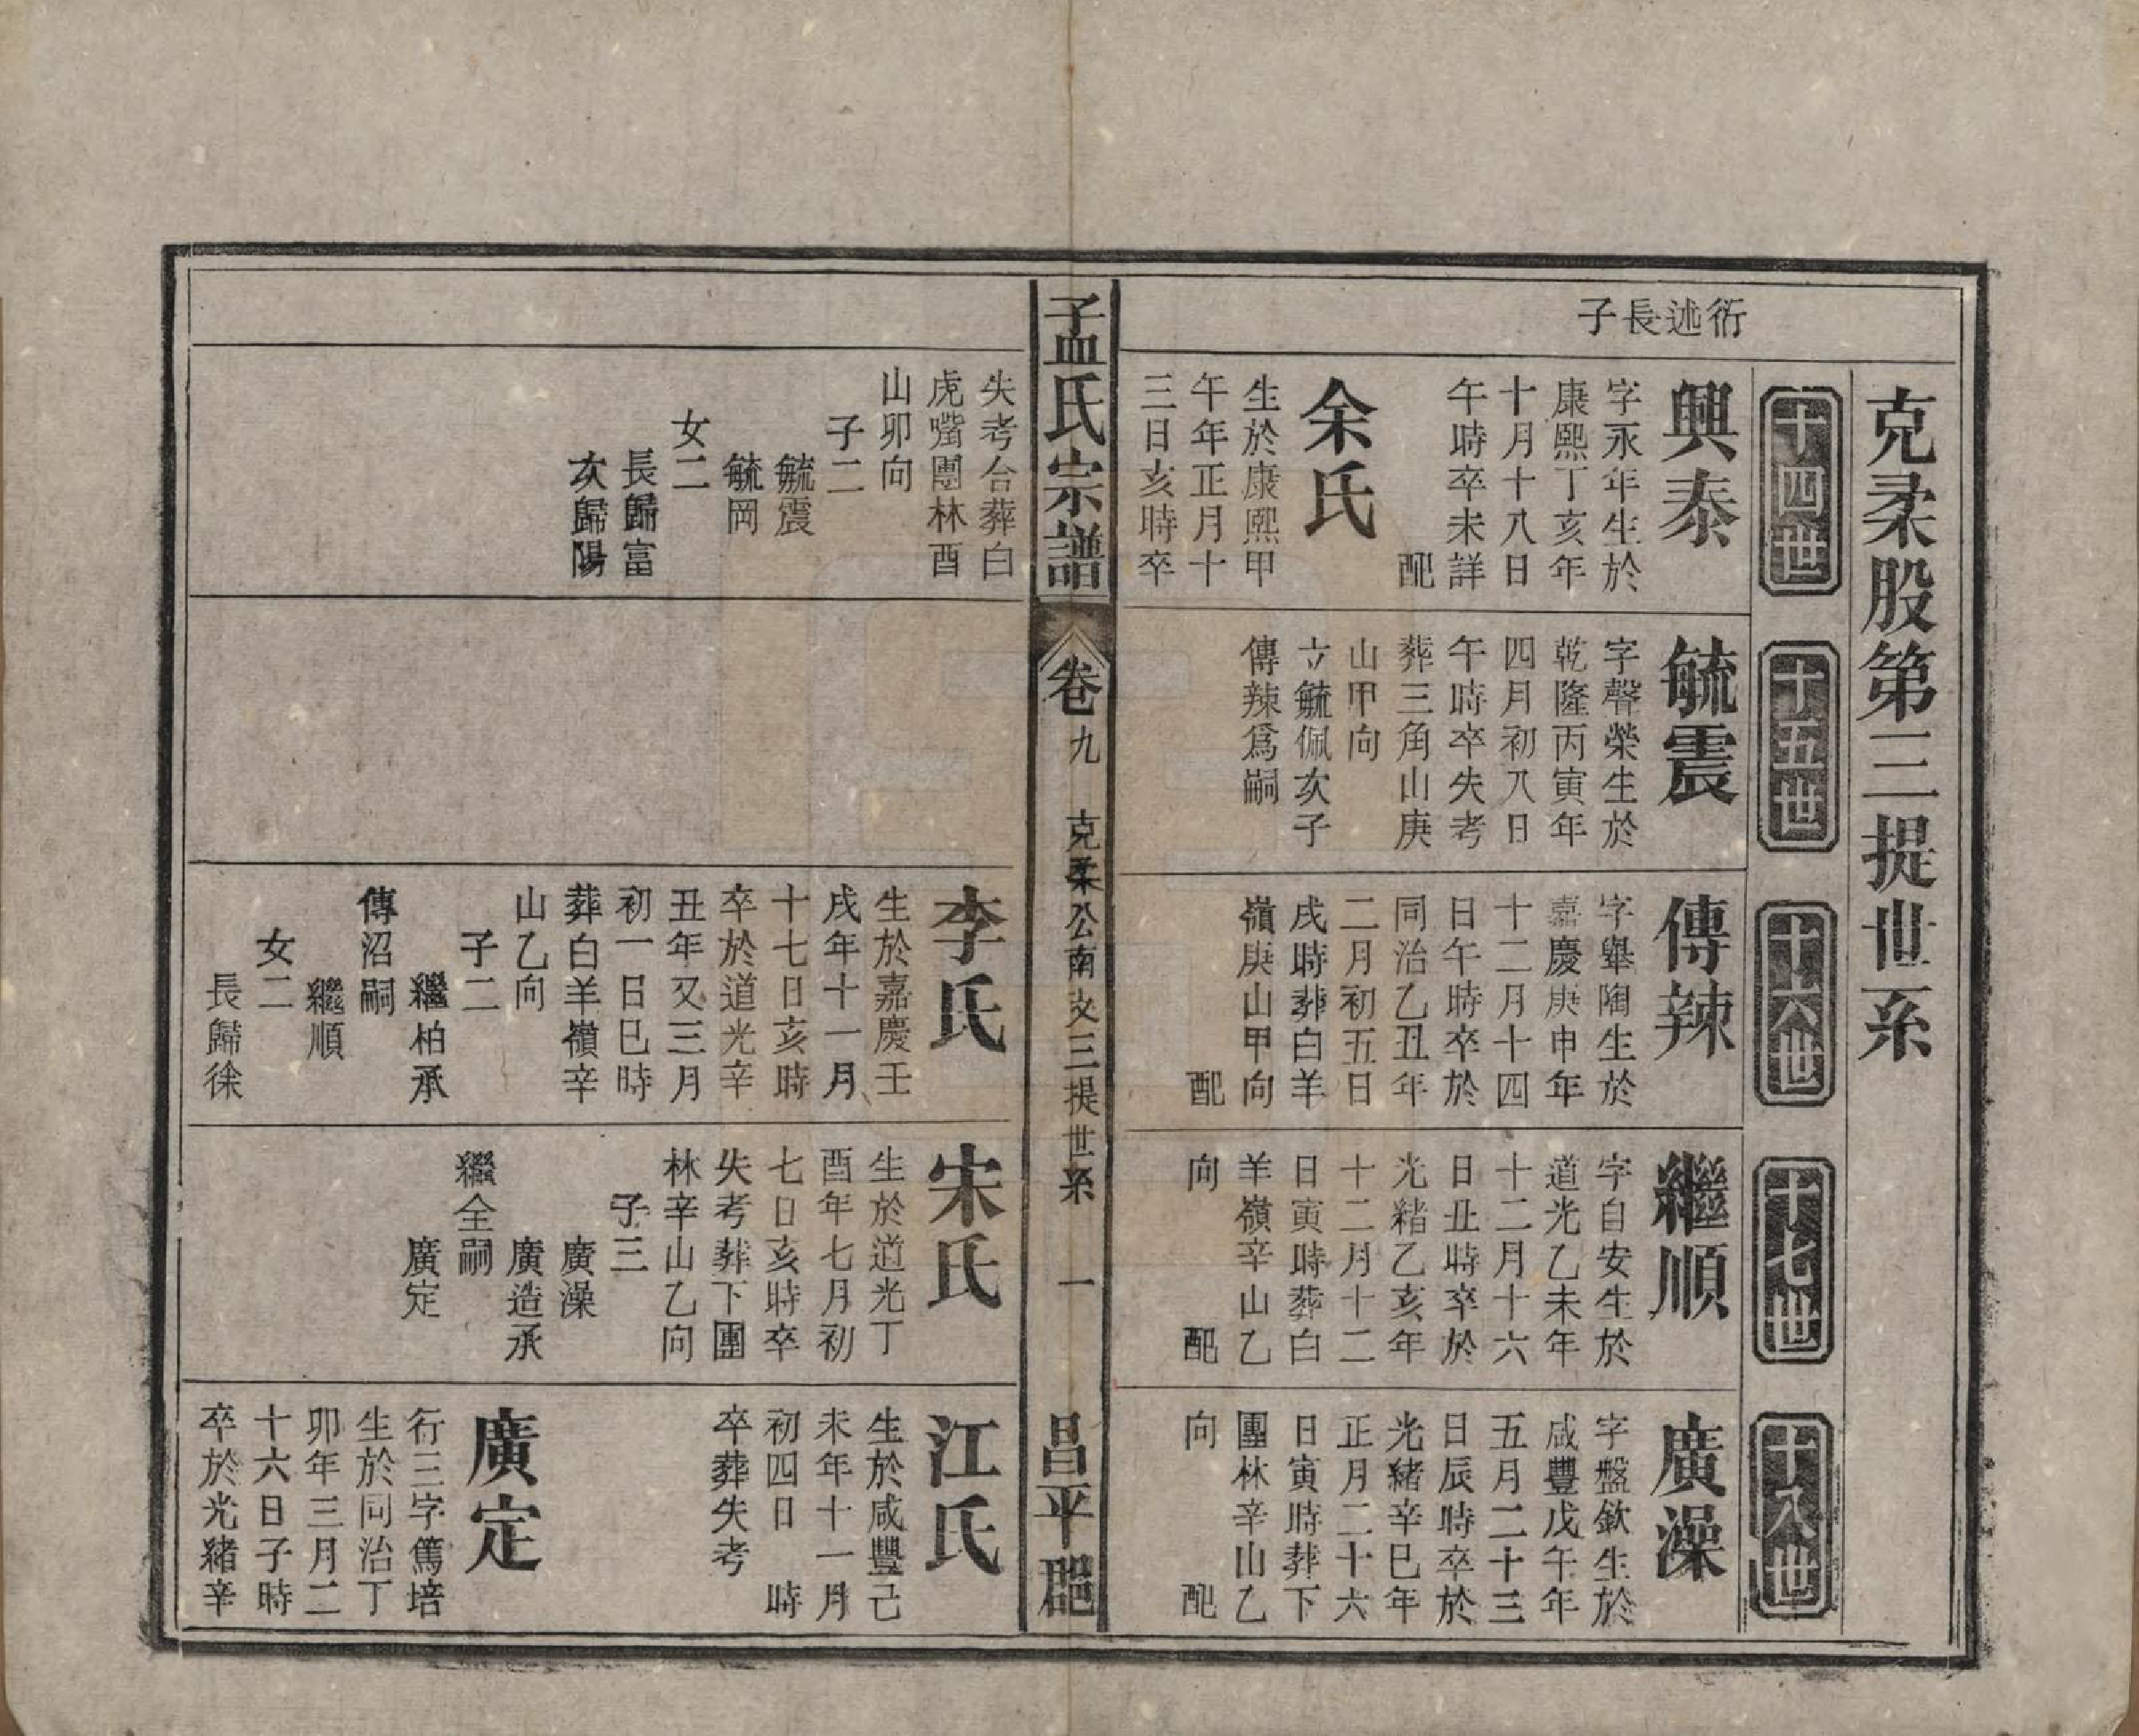 克柔股第三提世系
衍述長子
十四世
興泰
字永年生於
康熙丁亥年
十月十八日
午時卒未詳
配
余氏
生於康熙甲
午年正月十
三日亥時卒
十五世
毓震
字聲榮生於
乾隆丙寅年
四月初八日
午時卒失考
葬三角山庚
山甲向
立毓佩次子
傳辣爲嗣
十六世
傳辣
字犖陶生於
嘉慶庚申年
十二月十四
日午時卒於
同治乙丑年
二月初五日
戌時葬白羊
嶺庚山甲向
配
十七世
繼順
字自安生於
道光乙未年
十二月十六
日丑時卒於
光緒乙亥年
十二月十二
日寅時葬白
羊嶺辛山乙
向 配
十八世
廣澡
字盤欽生於
咸豐戊午年
五月二十三
日辰時卒於
光緒辛巳年
正月二十六
日寅時葬下
團林辛山乙
向 配
孟氏宗譜
卷九 克柔公南支三提世系 一
昌平郡
失考合葬白
虎嘴團林酉
山卯向
子二
毓震
毓岡
女二
長歸富
次歸陽
李氏
生於嘉慶壬
戌年十一月
十七日亥時
卒於道光辛
丑年又三月
初一日巳時
葬白羊嶺辛
山乙向
子二
繼柏承
傳沼嗣
繼順
女二
長歸徐
宋氏
生於道光丁
酉年七月初
七日亥時卒
失考葬下團
林辛山乙向
子三
廣澡
廣造承
繼全嗣
廣定
江氏
生於咸豐己
未年十一月
初四日 時
卒葬失考
廣定
行三字篤培
生於同治丁
卯年三月二
十六日子時
卒於光緒辛